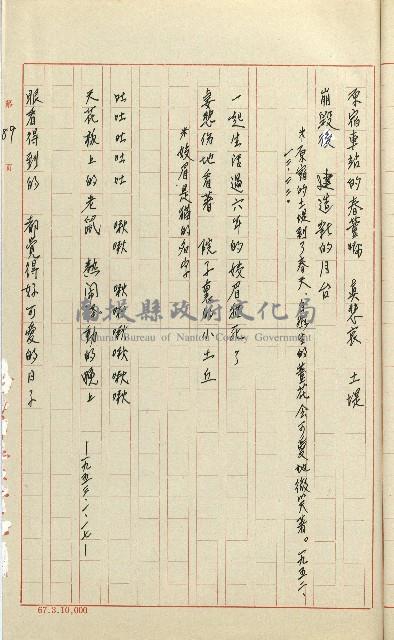 原宿車站的春菫啊 真悲哀 土堤
崩毀後 建造新的月台
※原宿的土堤到了春天、野生的菫花会可愛地微笑着。一九五二、
一二、二二。
一起生活過六年的 猫死了
妻悲傷地看著 院子裏的小土丘
※ 眉是猫的名字
吐吐吐吐吐 啾啾 啾啾啾啾啾
天花板上的老鼠 熱鬧 動的晚上
—一九五三、一、一七—
眼看得到的 都覺得好可愛的日子
第 89 頁
南投縣政府文化局
Cultural Bureau of Nantou County Government
67.3.10,000